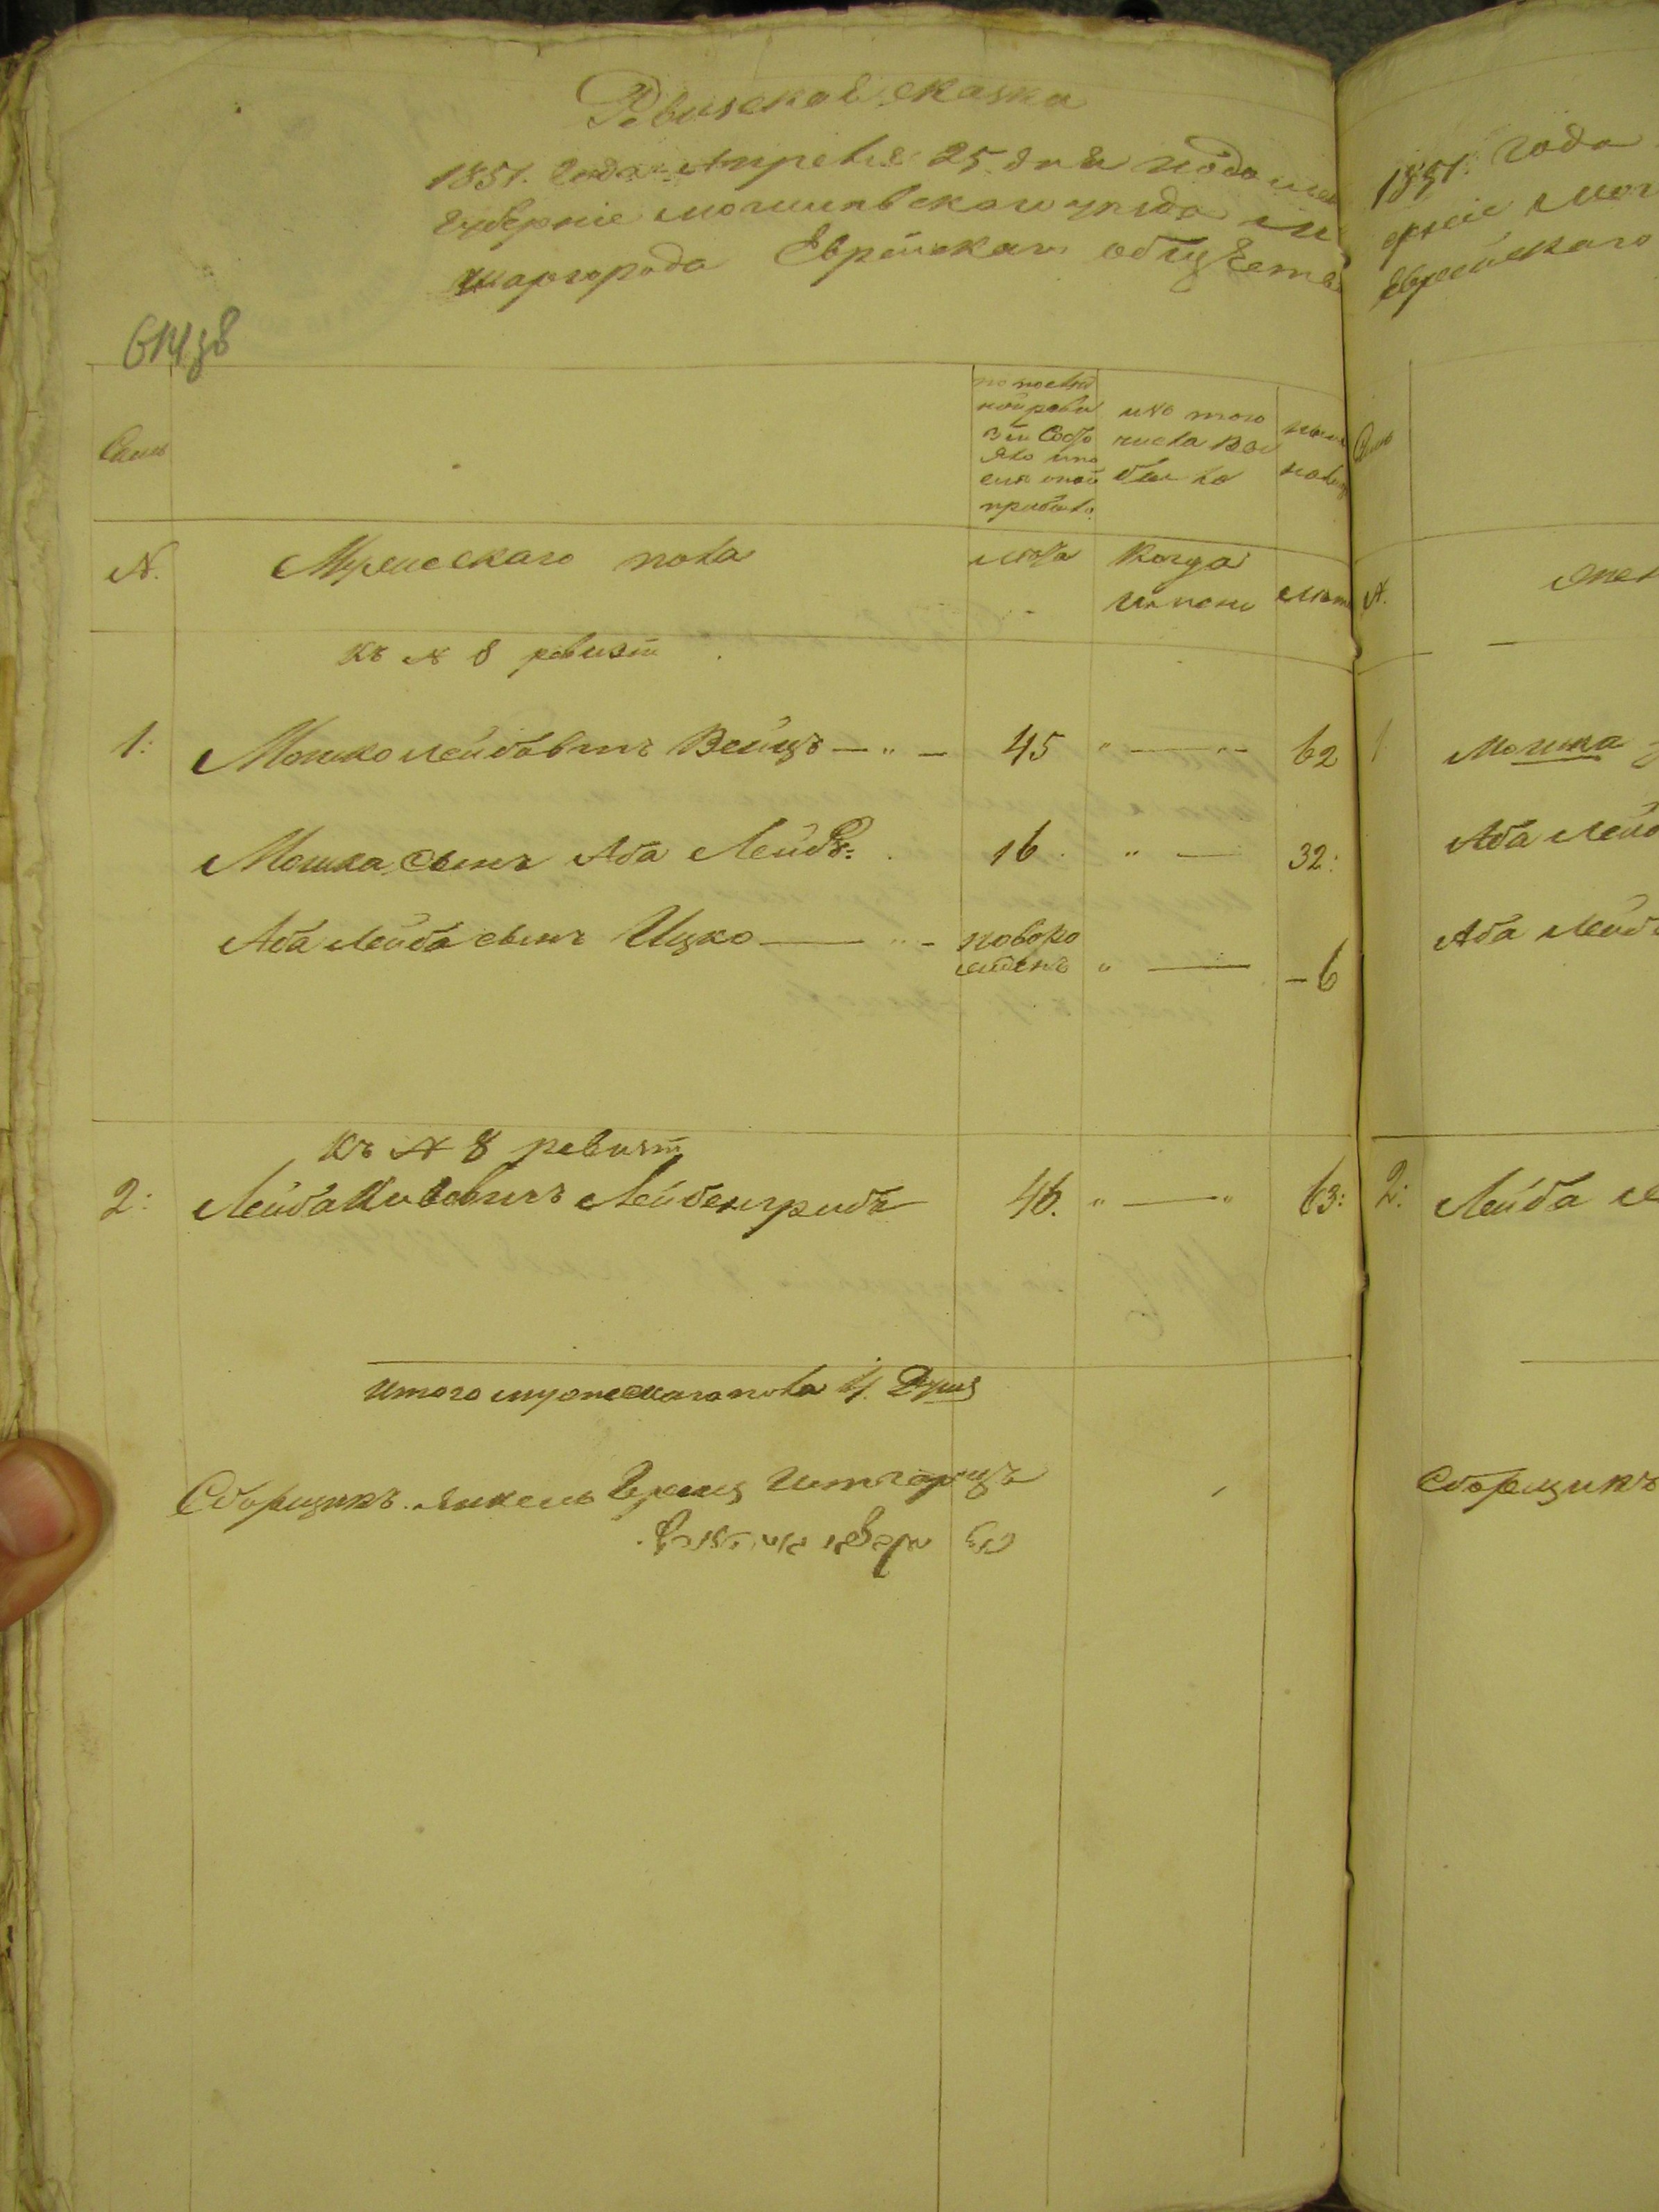 Ревизская сказка
1851. Года Апреля 25. дня подоль
губернiе могилевскаго уезда м
шаргорода Еврейскаго общества
Семьи
по послѣд
ной реви
зiи Состо
яло и по
сле оной
прибыло
изъ того
числа вы
было
ныне
на лиц
N.
Мужескаго пола
лета
Когда
именно
лета
къ N 8 ревизiи
1:
Мошко Лейбовичъ Вейцъ — " —
45
" — "
62
Мошка сынъ Аба Лейбъ.
16.
" —
32:
Аба Лейба сынъ Ицко — " —
новоро
жденъ
" —
— 6
къ N 8 ревизiи
2:
Лейба
46.
" — "
63:
Итого мужескаго пола 4. Душ
Сборщикъ. Янкель
1851. года
Еврейскаго
N.
1
Мошка
Аба Лейб
Аба Лейб
2:
Лейба
Сборщикъ